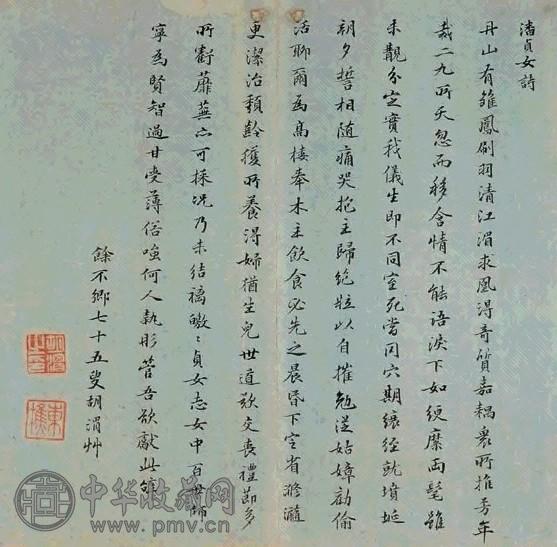 潘貞女詩
丹山有雛鳳刷羽清江湄求凰得奇質嘉耦衆所推芳年
裁二九所天忽而移含情不能語淚下如綆縻兩髦雖
未覯分定實我儀生即不同室死當同穴期縗絰就墳埏
朝夕誓相隨痛哭抱主歸絶粒以自摧勉從姑嫜勸偷
活聊爾爲高樓奉木主飲食必先之晨昏下定省滫瀡
更潔治頹齡獲所養得婦猶生兒世道欻交喪禮節多
所虧蘼蕪亦可採况乃未結褵皦〻貞女志女中百世師
寧爲賢智過甘受薄俗嗤何人執彤管吾欲獻此
餘不鄉七十五叟胡渭艸
東樵
中华收藏网
www.pmv.cn